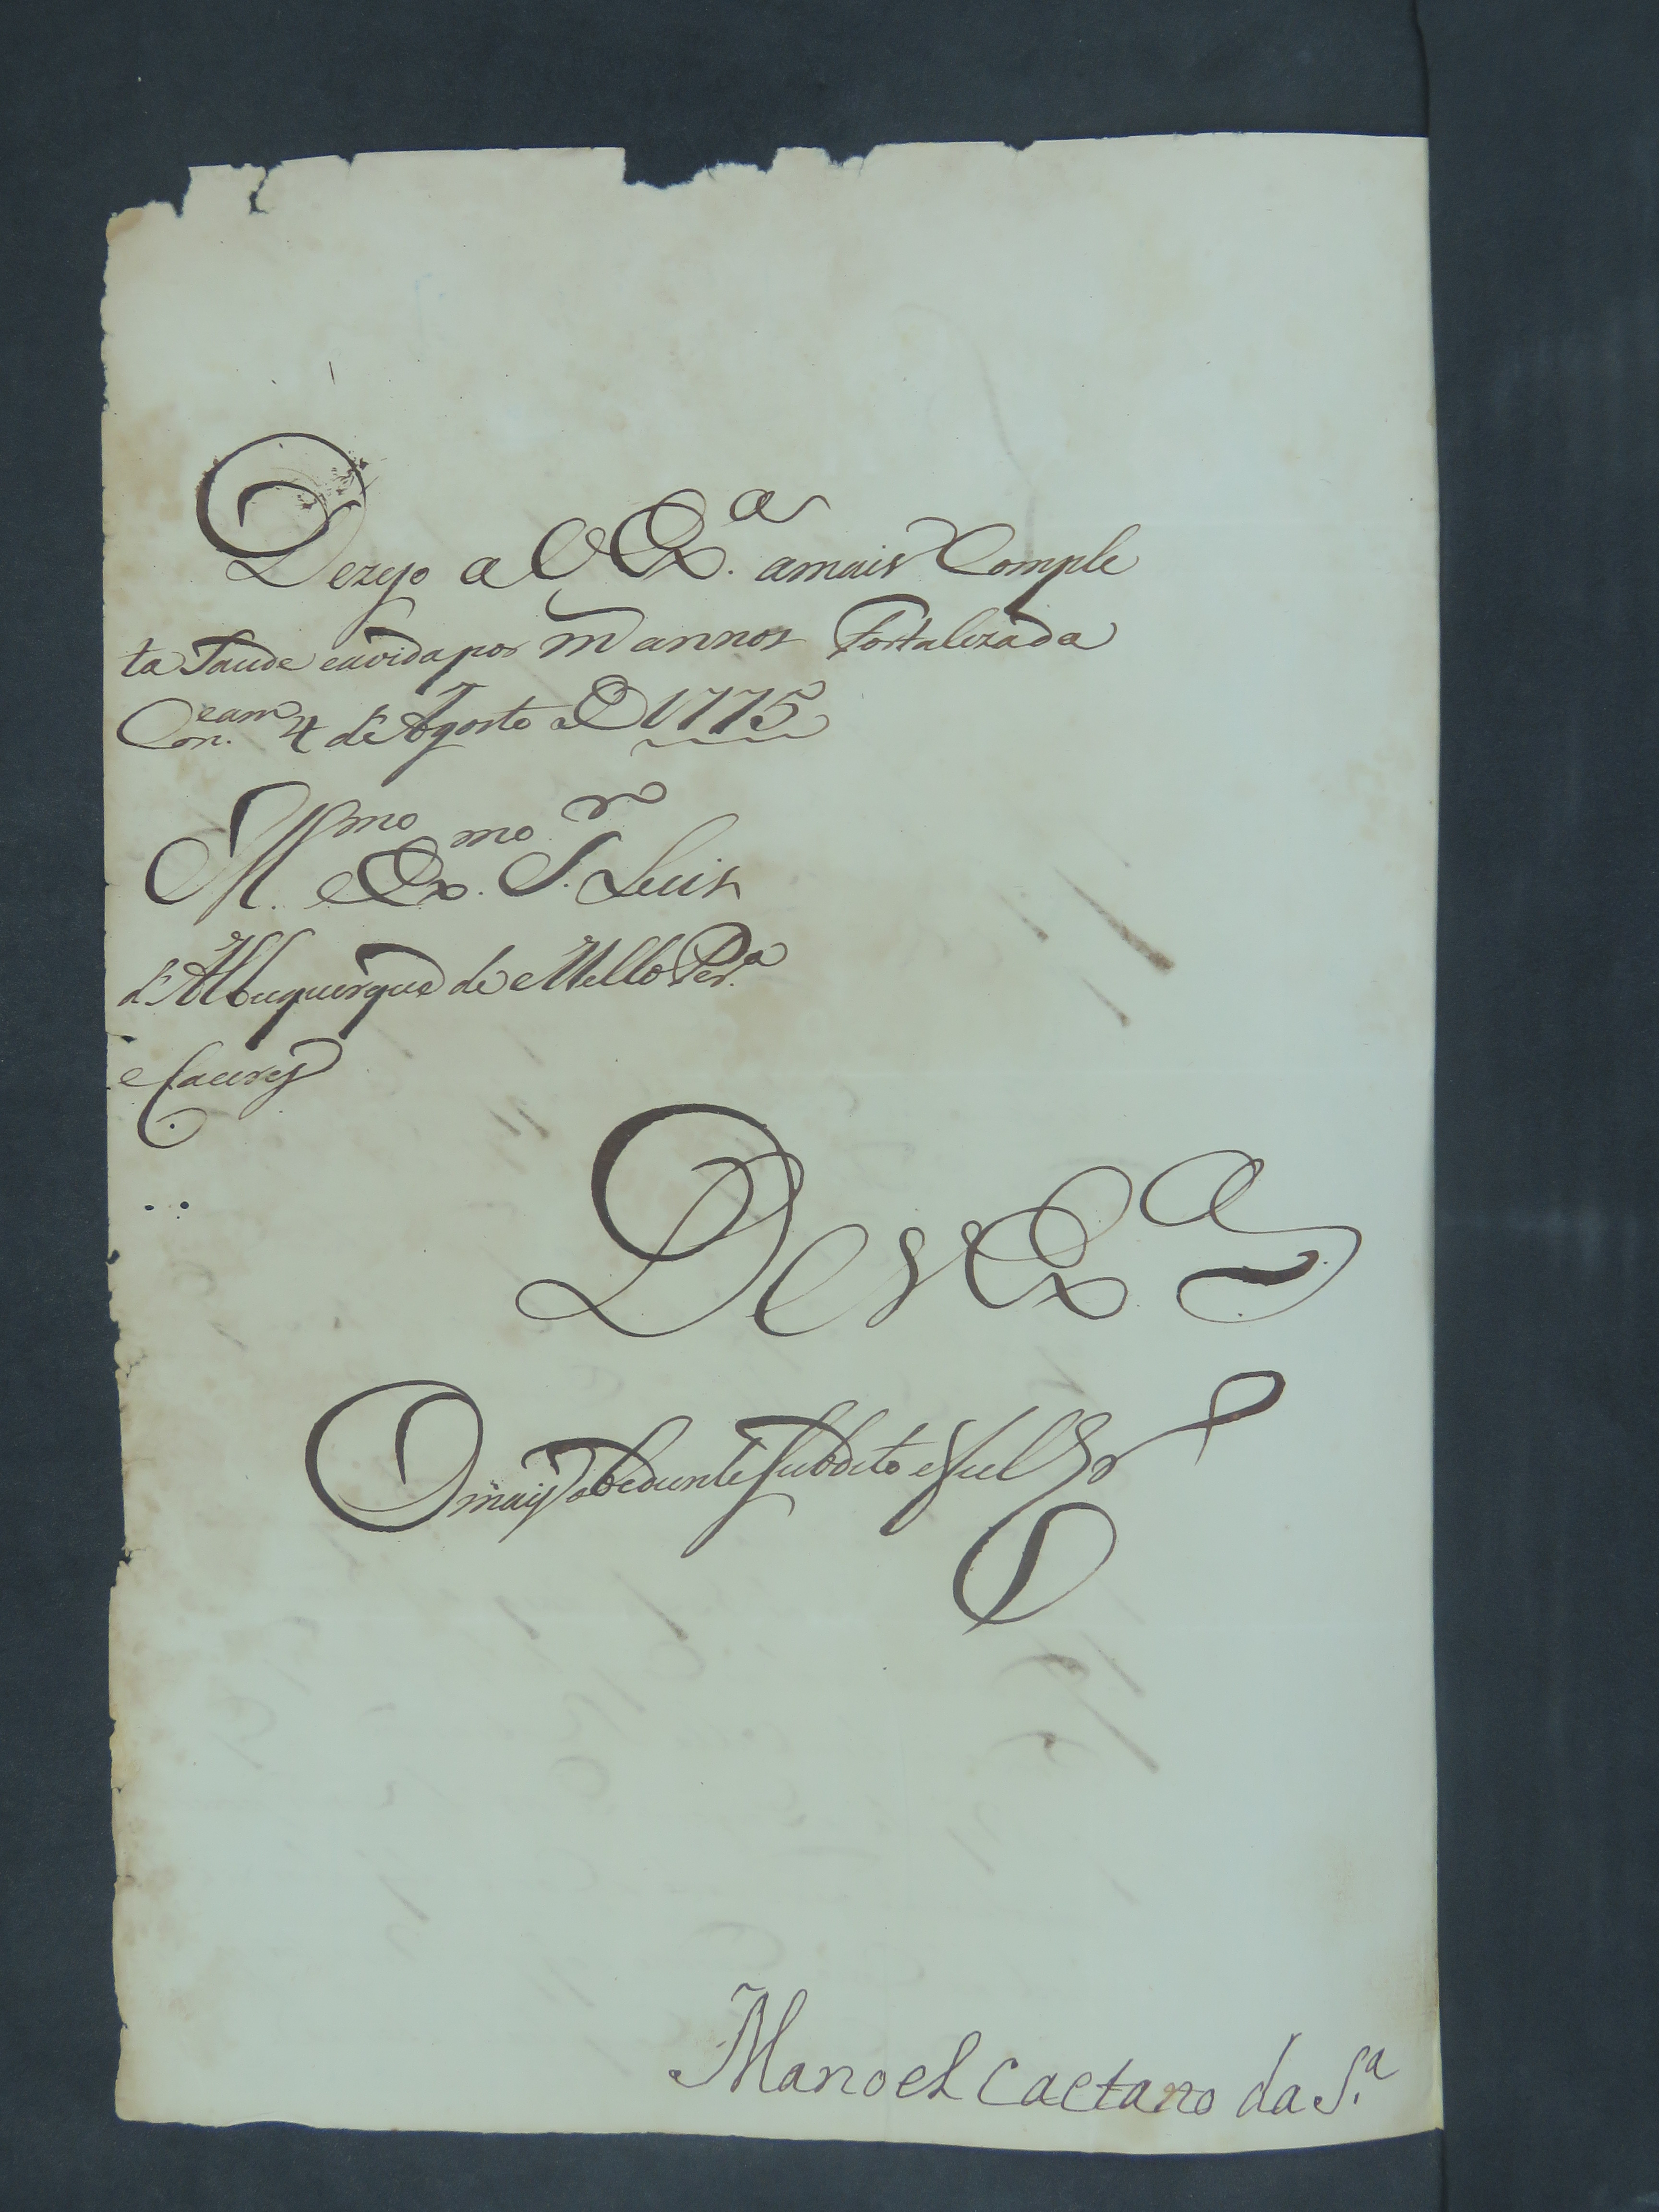 Dezejo a V Ex.ª amais Comple
ta Saude eavida por m annos Fortalezada
Con.cam 4 de Agosto de 1775
Ill.mo e Ex.mo S.r Luis
d'Albuquerque de Mello Per.ª
e Caceres
De V Exª
O mais obediente Subdito e fiel Sr
Manoel Caetano da S.ª